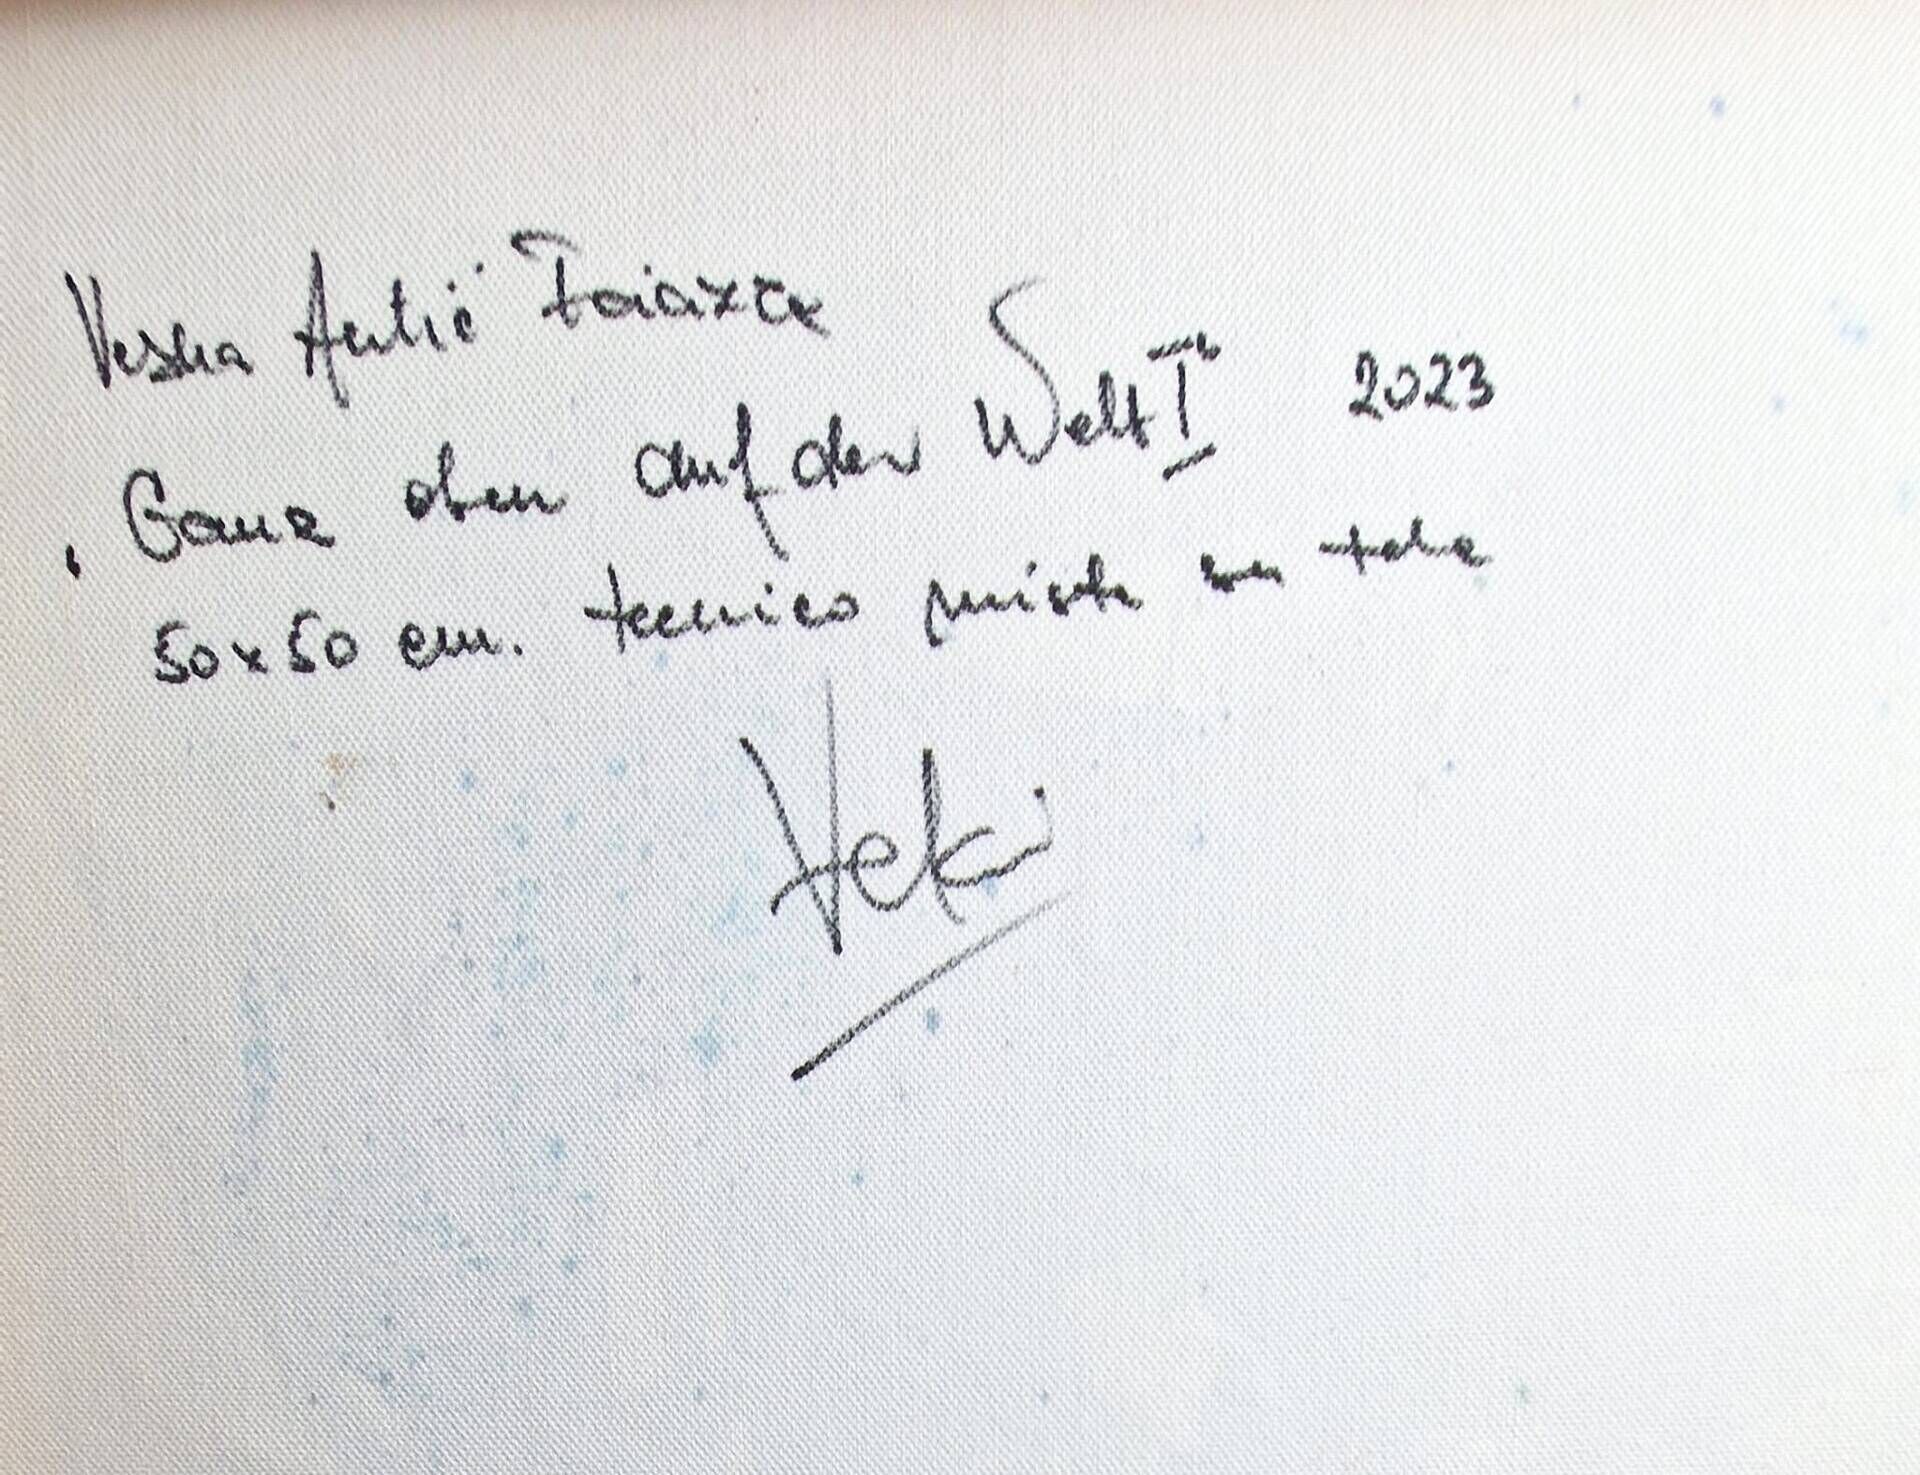 Vesna Antić
„Ganz oben auf der Welt I“ 2023
50x50 cm. tecnica mista su tela
Veki